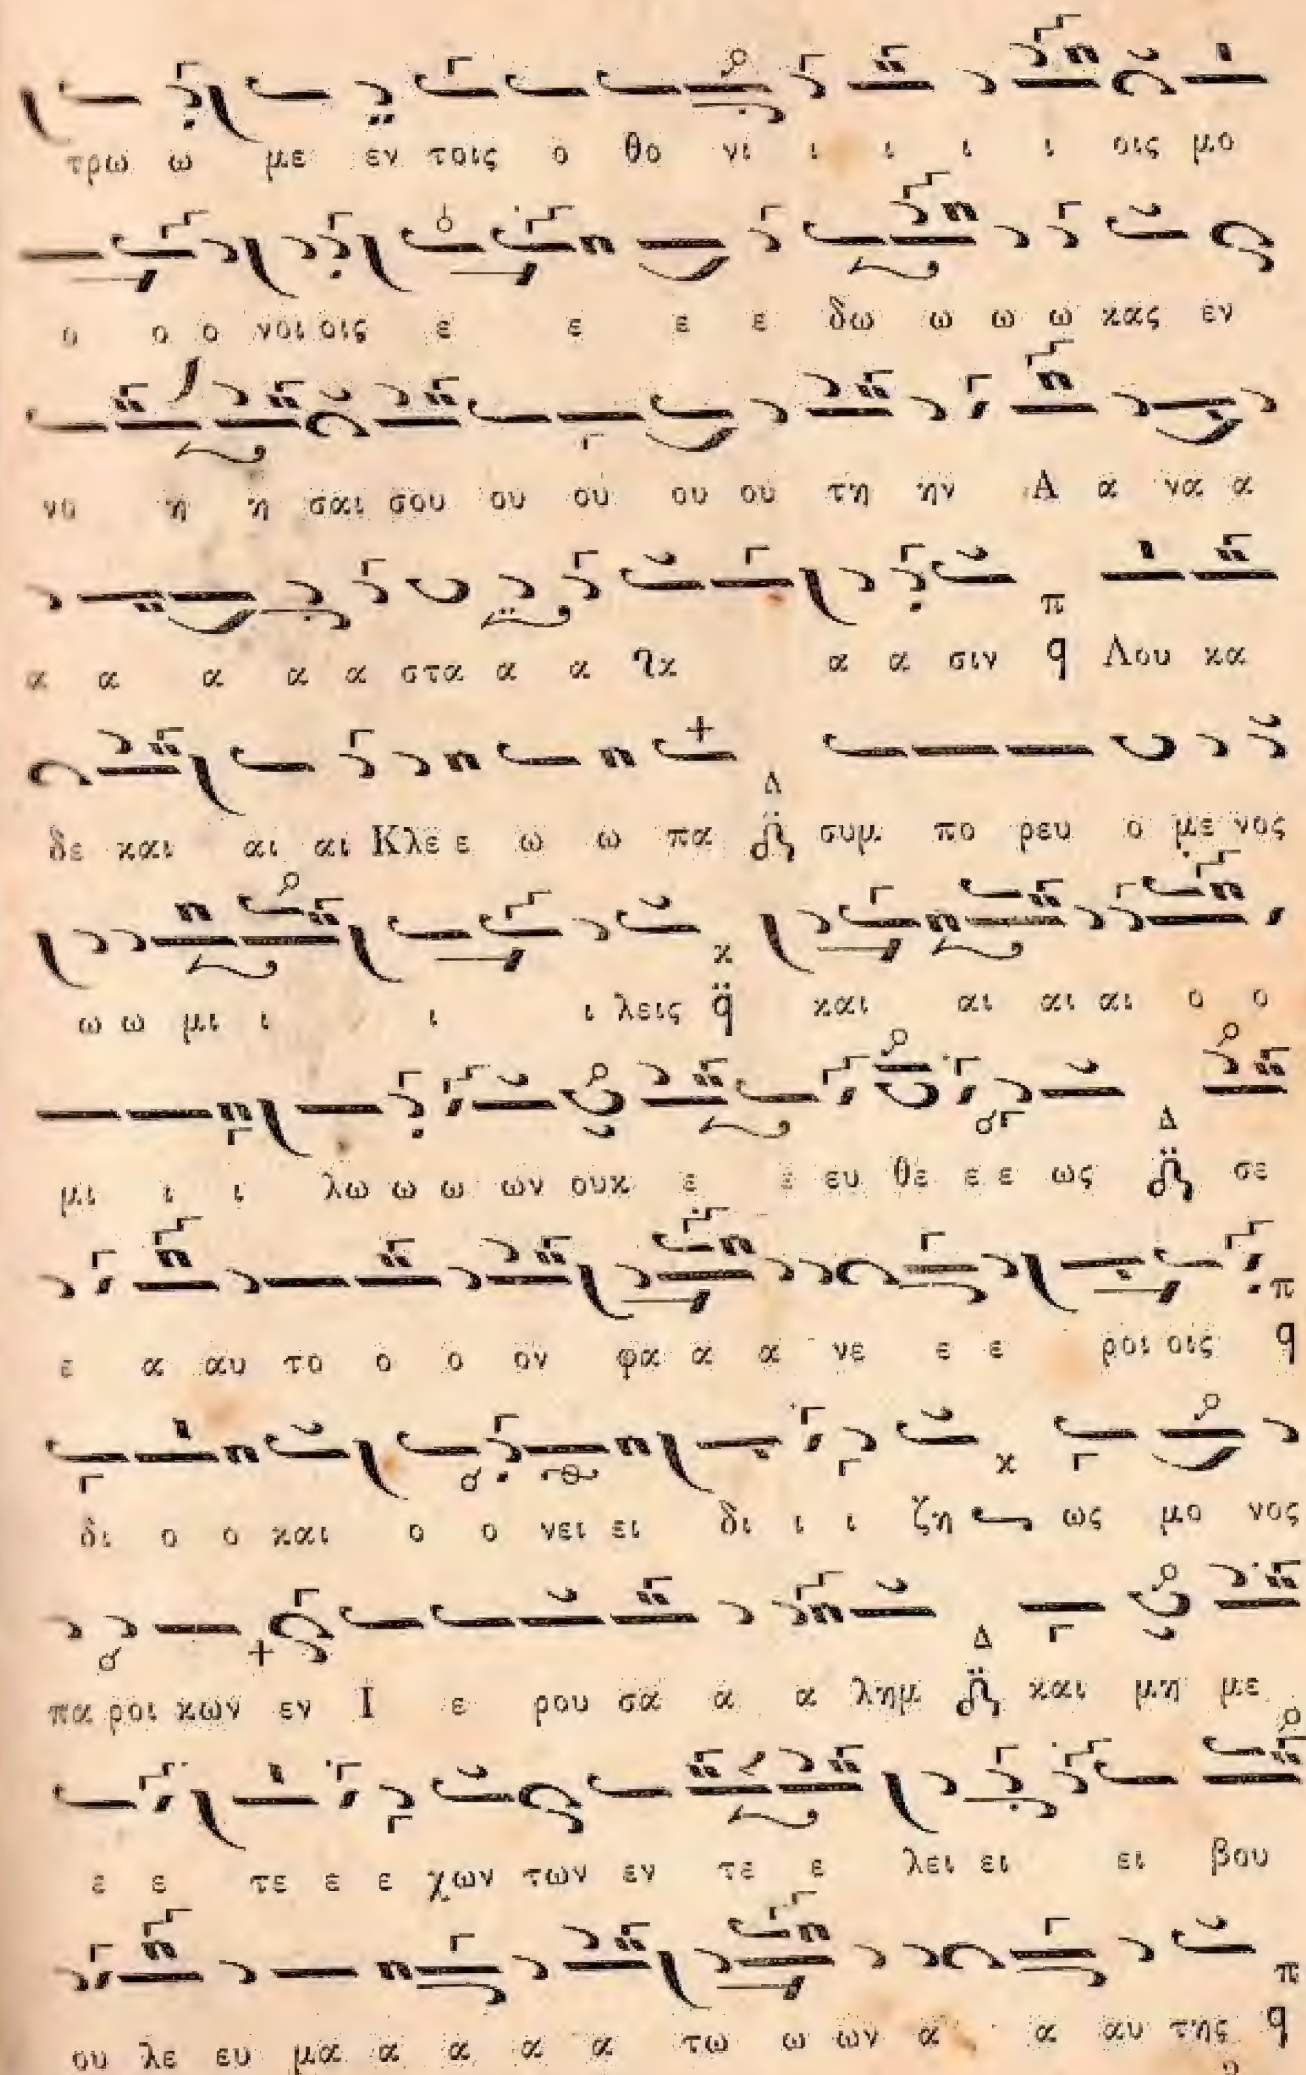 τρω ω με εν τοις ο θο νι ι ι ι ι οις μο
ο ο ο νοι οις ε ε ε ε δω ω ω ω κας εν
νο η η σαι σου ου ου ου ου τη ην Α α να α
α α α α α στα α α α α σιν Λου κα
δε και αι αι Κλε ε ω ω πα συμ πο ρευ ο με νος
ω ω μι ι ι ι λεις και αι αι αι ο ο
μι ι ι λω ω ω ων ουκ ε ε ευ θε ε ε ως σε
ε α αυ το ο ο ον φα α α νε ε ε ροι οις
δι ο ο και ο ο νει ει δι ι ι ζη ως μο νος
πα ροι κων εν Ι ε ρου σα α α λημ και μη με
ε ε τε ε ε χων των εν τε ε λει ει ει βου
ου λε ευ μα α α α α τω ω ων α α αυ της